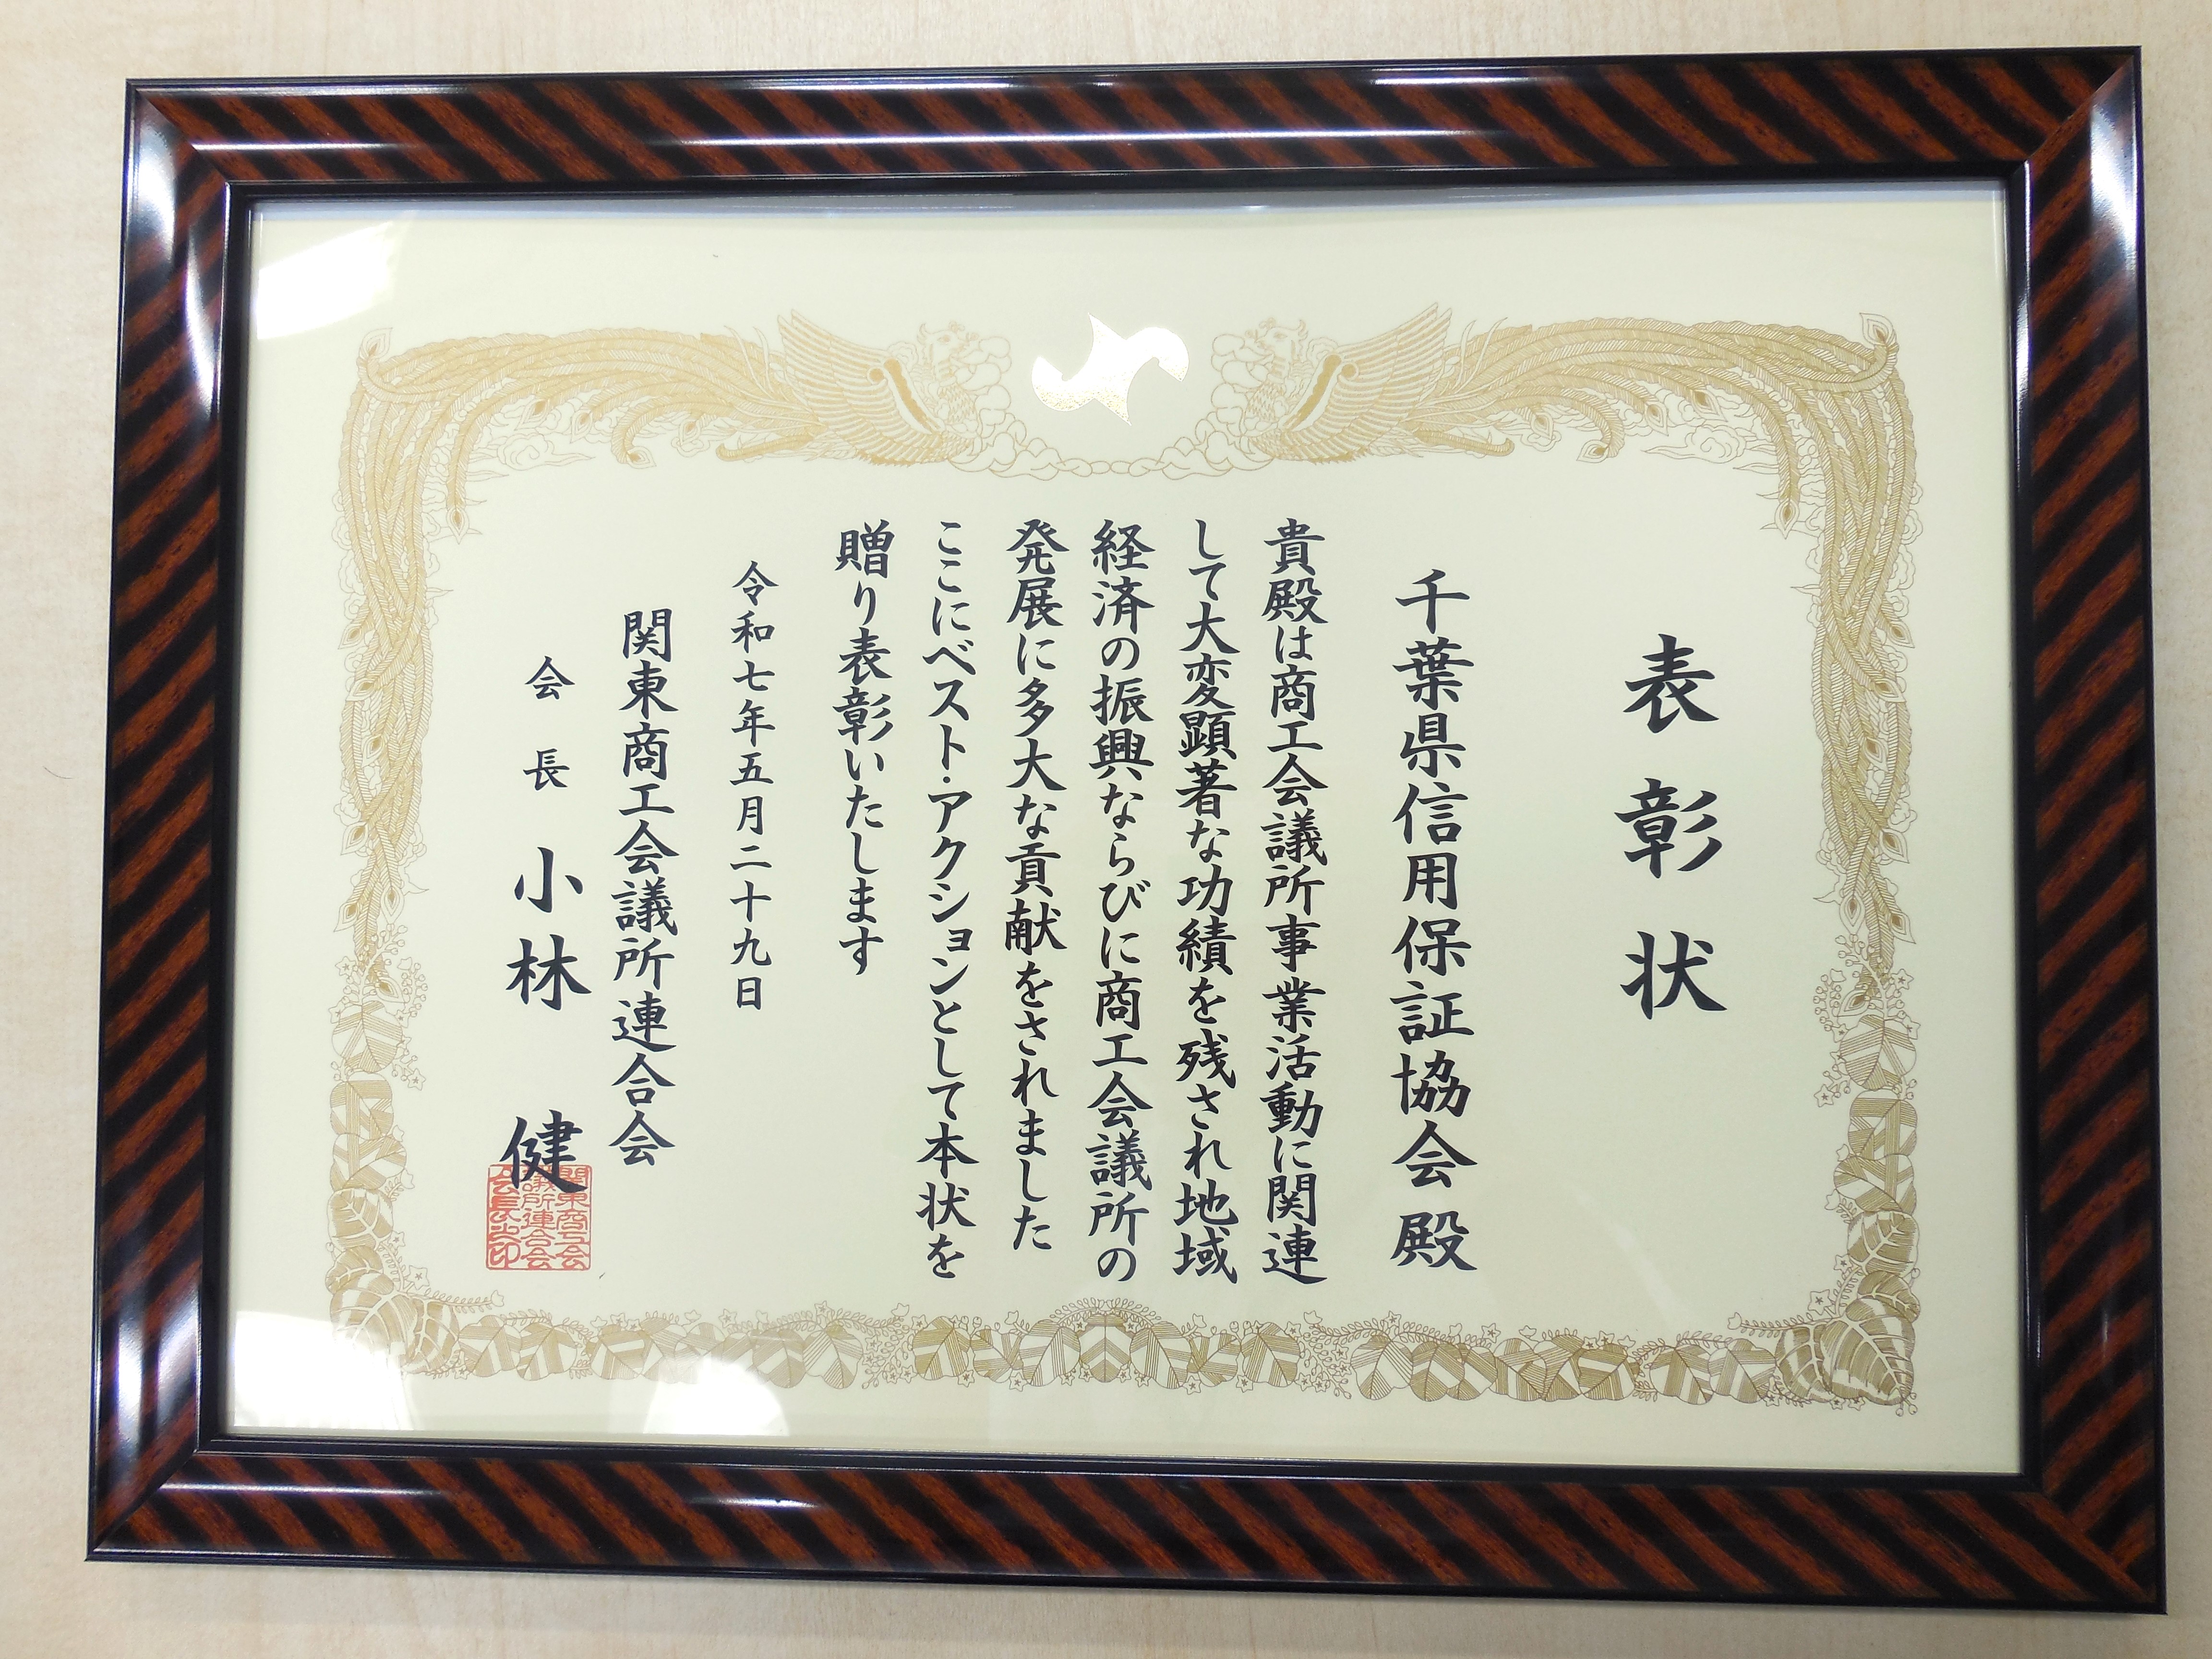 表彰状
千葉県信用保証協会殿
貴殿は商工会議所事業活動に関連
して大変顕著な功績を残され地域
経済の振興ならびに商工会議所の
発展に多大な貢献をされました
ここにベスト・アクションとして本状を
贈り表彰いたします
令和七年五月二十九日
関東商工会議所連合会
会長 小林 健
関東商工会
議所連合会
会長之印